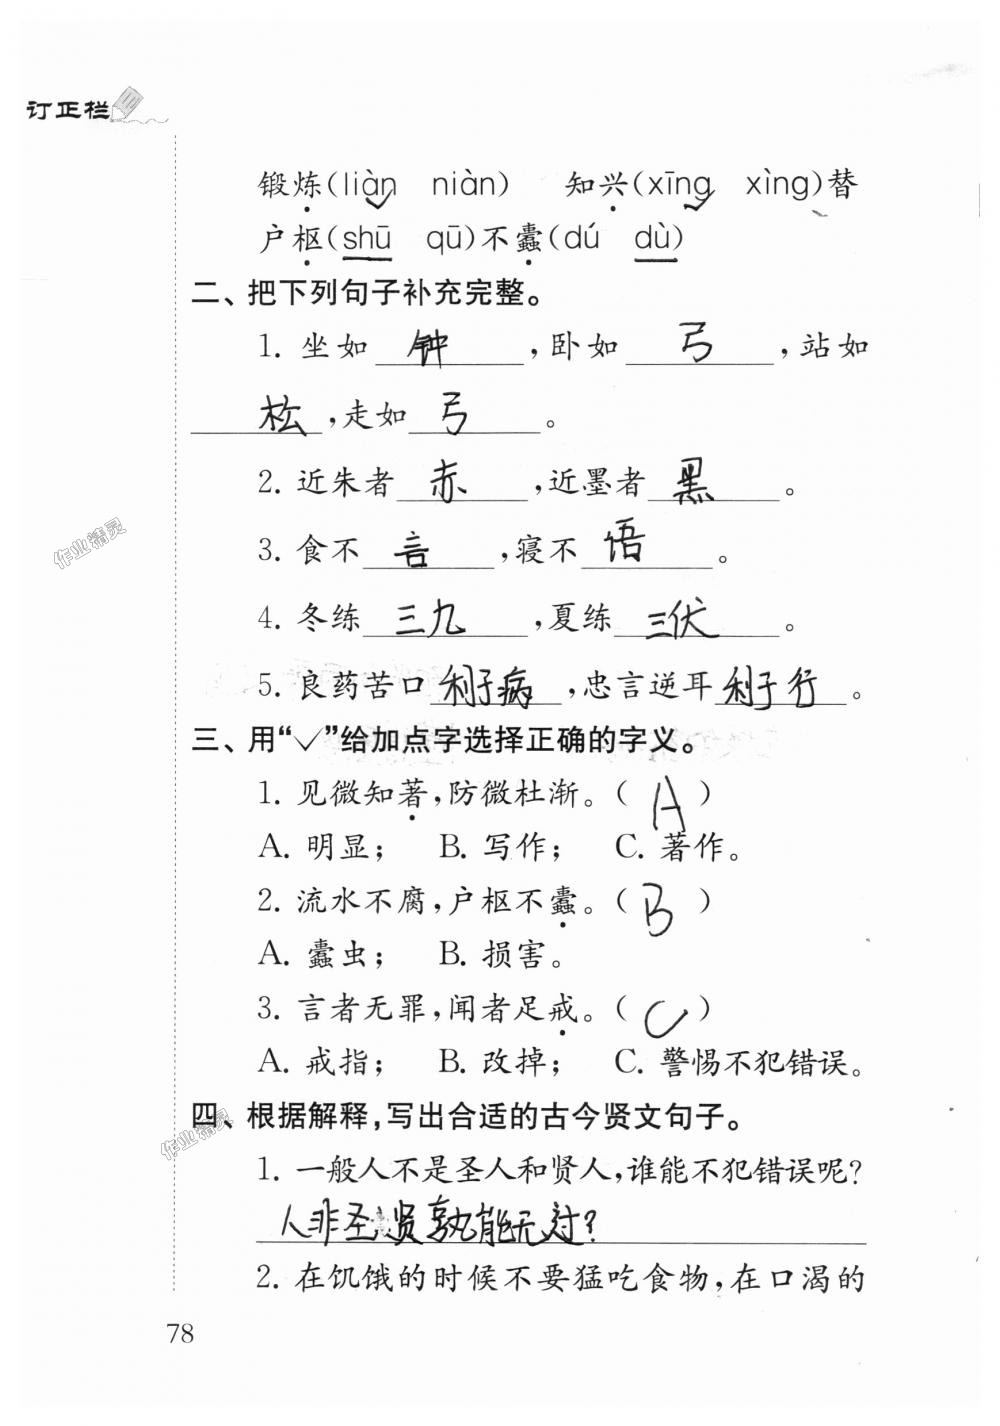 订正栏
锻炼(liàn niàn) 知兴(xīng xìng)替
户枢(shū qū)不蠹(dú dù)
二、把下列句子补充完整。
1. 坐如 钟 ,卧如 弓 ,站如
松 ,走如 弓 。
2. 近朱者 赤 ,近墨者 黑 。
3. 食不 言 ,寝不 语 。
4. 冬练 三九 ,夏练 三伏 。
5. 良药苦口 利于病 ,忠言逆耳 利于行 。
三、用“✓”给加点字选择正确的字义。
1. 见微知著,防微杜渐。( A )
A. 明显; B. 写作; C. 著作。
2. 流水不腐,户枢不蠹。( B )
A. 蠹虫; B. 损害。
3. 言者无罪,闻者足戒。( C )
A. 戒指; B. 改掉; C. 警惕不犯错误。
四、根据解释,写出合适的古今贤文句子。
1. 一般人不是圣人和贤人,谁能不犯错误呢?
人非圣贤孰能无过?
2. 在饥饿的时候不要猛吃食物,在口渴的
78
作业精灵
作业精灵